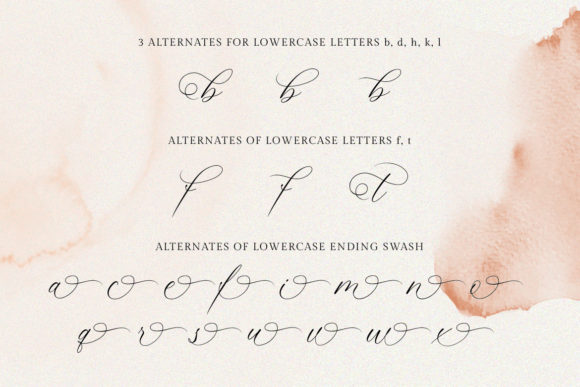 3 ALTERNATES FOR LOWERCASE LETTERS b, d, h, k, l
b b b
ALTERNATES OF LOWERCASE LETTERS f, t
f f t
ALTERNATES OF LOWERCASE ENDING SWASH
a c e f i m n o
q r s u v w x